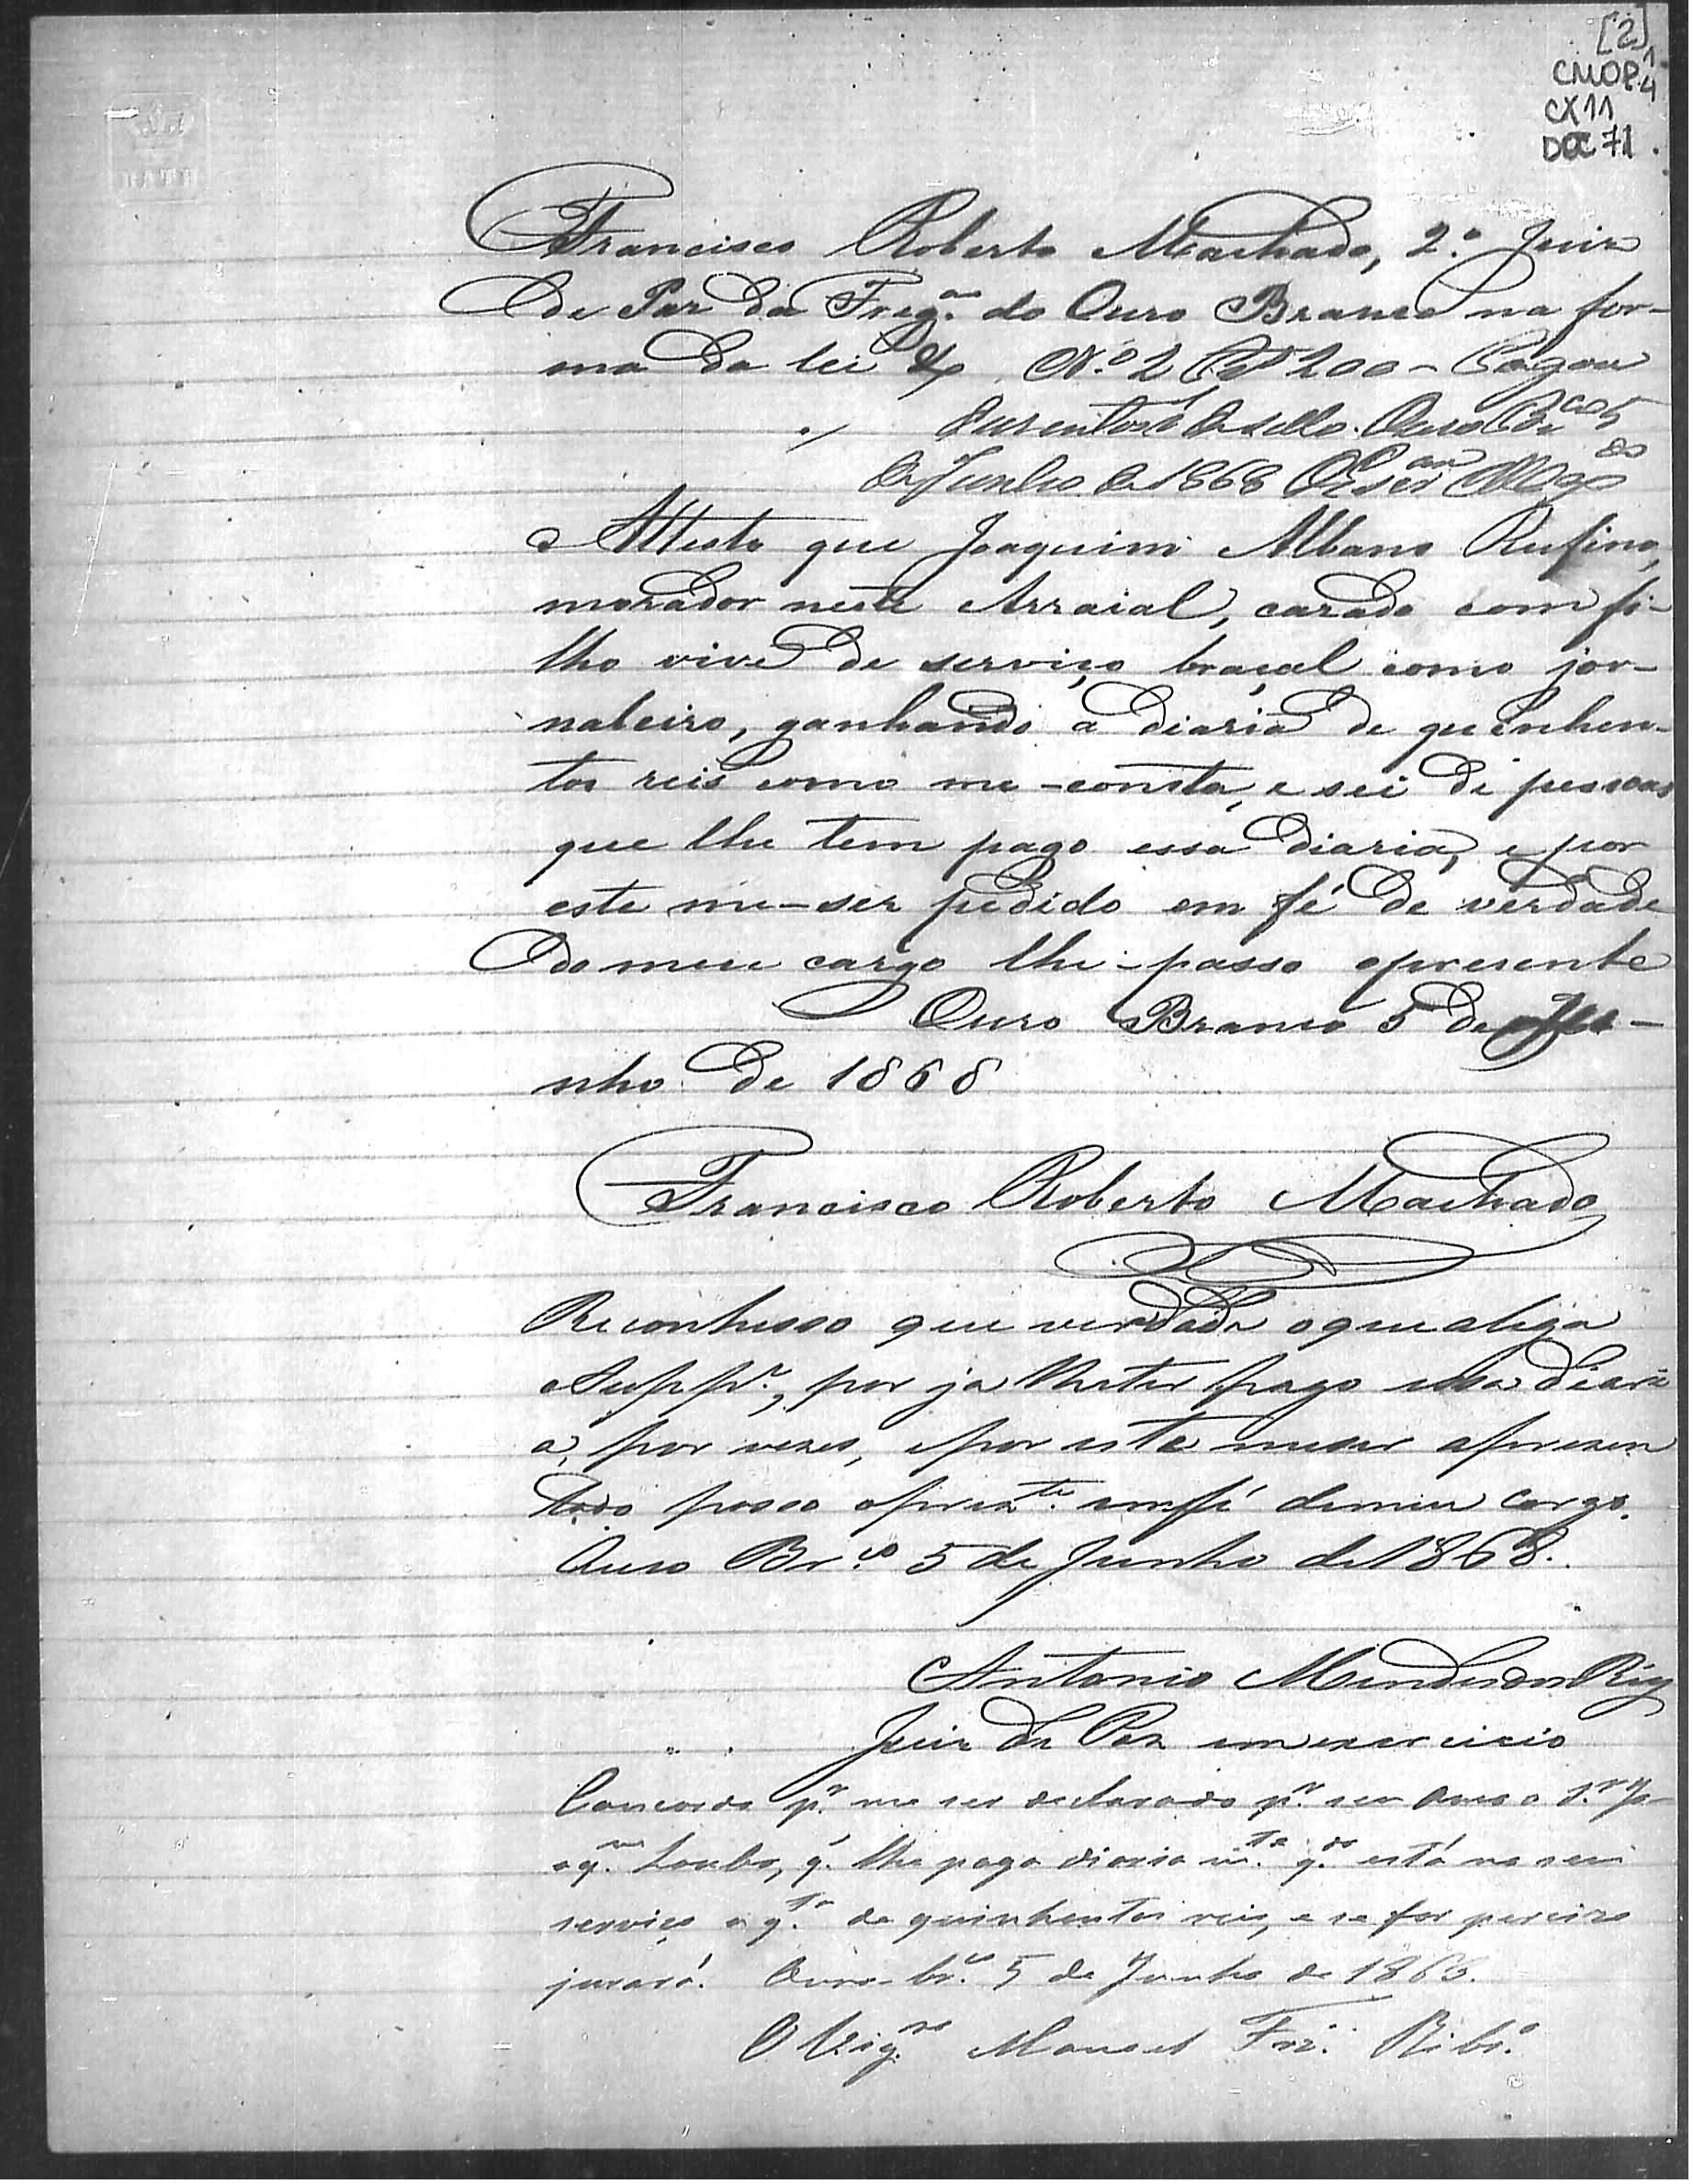 [2]
CMOP 1.4
CX11
DOC 71.
Francisco Roberto Machado, 2.º Juiz
de Paz da Freg.ª do Ouro Branco na for-
ma da lei & N.º 2 Rs 200 - Pagou
duzentos rs de sello. Ouro Br.co 5
de Junho de 1868
Attesto que Joaquim Albano Rufino,
morador neste Arraial, cazado com fi-
lho vive de serviço braçal como jor-
naleiro, ganhando a diaria de quinhen-
tos reis como me-consta, e sei de pessoas
que lhe tem pago essa diaria, e por
este me-ser pedido em fé de verdade
do meu cargo lhe-passo opresente
Ouro Branco 5 de Ju-
nho de 1868
Francisco Roberto Machado
Reconhesso que verdade oque alega
Supp.e, por ja lheter pago essa diari
a, por vezes, epor este meser aprezen
tado passo oprez.te emfé demeu cargo.
Ouro Br.co 5 de Junho de 1868.
Antonio Mendes
Juiz de Paz emexercicio
Concordo p.r me ser declarado p.r seu Amo o S.r Jo-
aq.m, q. lhe paga diaria q.do está no seu
serviço a q.ta de quinhentos reis, e se for percizo
jurará. Ouro-br.co 5 de Junho de 1868.
O Vig.ro Manoel Frz. Ribr.o